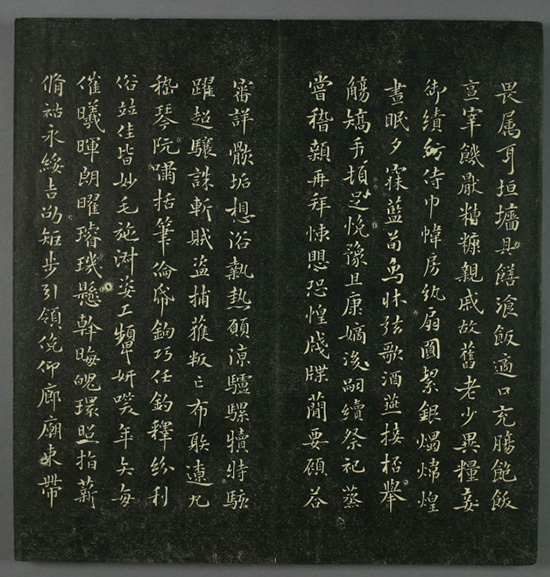 畏属耳垣墻具饍飡飯適口充腸飽飫
亯宰饑猒糟糠親戚故舊老少異糧妾
御績紡侍巾幃房紈扇圓絜銀燭煒煌
晝眠夕寐藍笋象牀弦歌酒讌接杯舉
觴矯手頓足悅豫且康嫡後嗣續祭祀蒸
嘗稽顙再拜悚懼恐惶牋牒簡要顧答
審詳骸垢想浴執熱願涼驢騾犢特駭
躍超驤誅斬賊盜捕獲叛亡布射遼丸
嵇琴阮嘯恬筆倫紙鈞巧任釣釋紛利
俗竝佳皆妙毛施淑姿工顰妍笑年矢每
催曦暉朗曜璿璣懸斡晦魄環照指薪
脩祜永綏吉劭矩步引領俛仰廊廟束帶